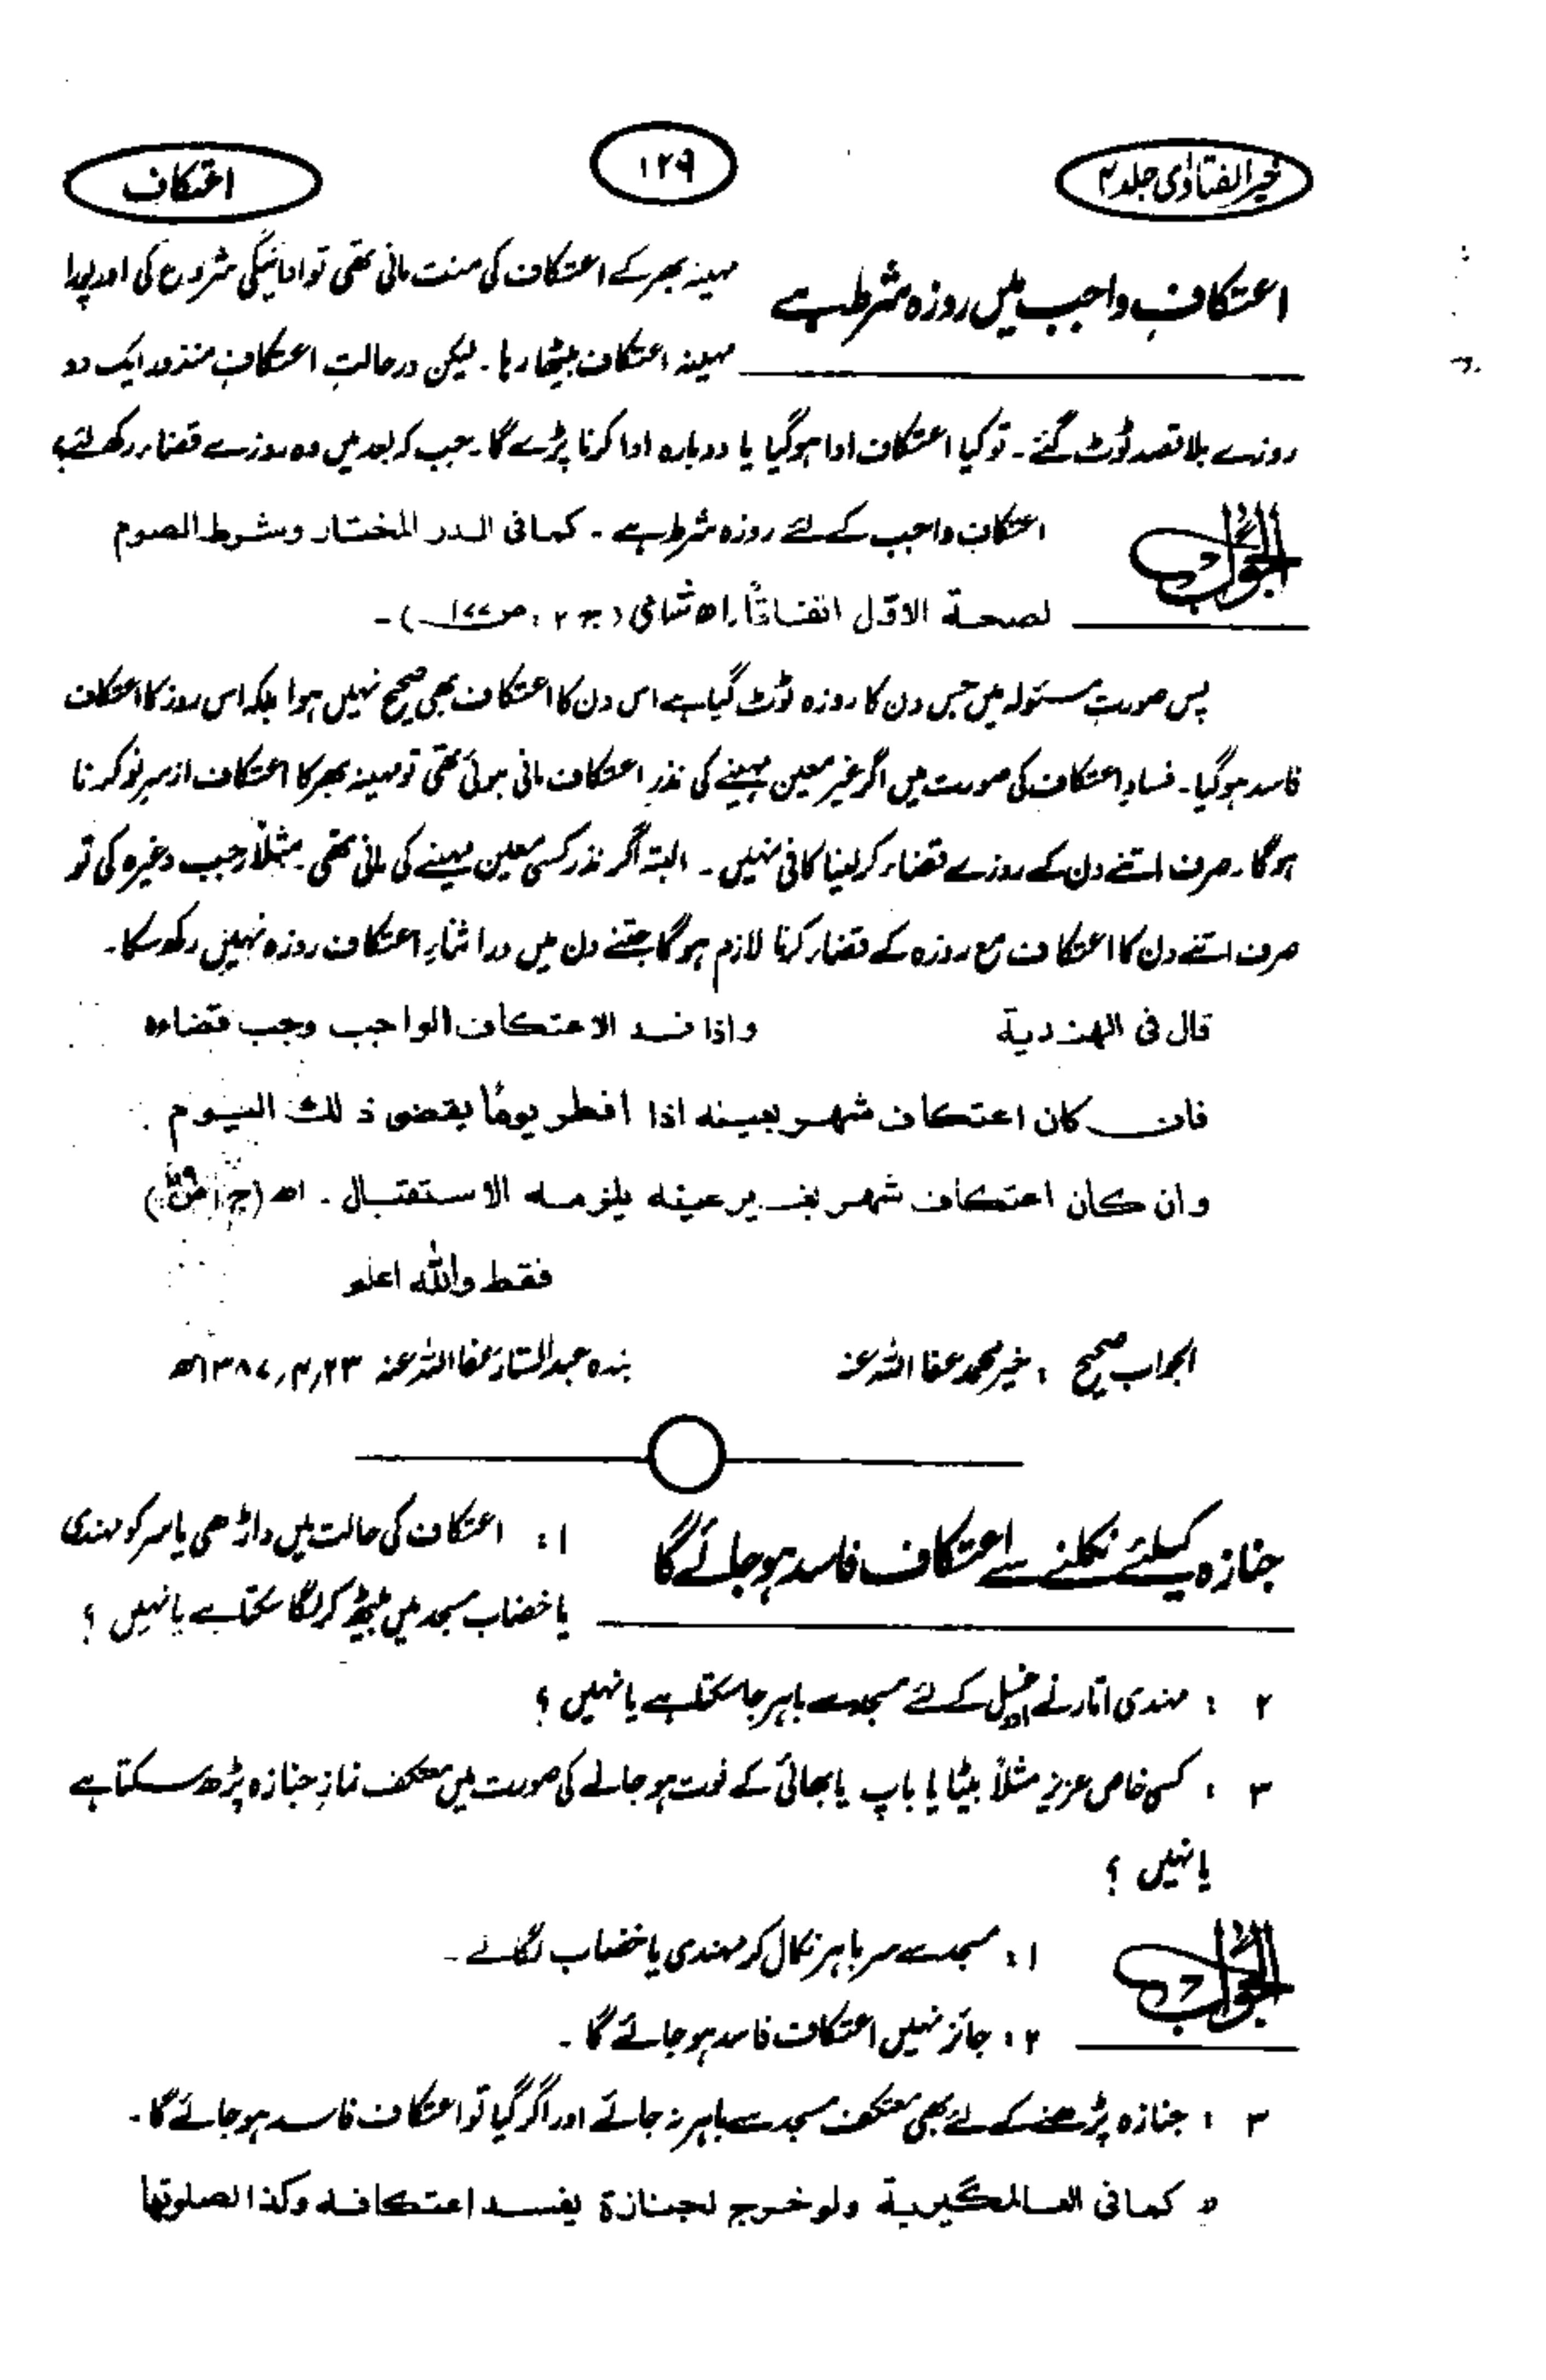 خیر الفتاوٰی جلد ۴
۱۲۹
اعتکاف
اعتکافِ واجب میں روزہ شرط ہے
مہینہ بھر کے اعتکاف کی منت مانی تھی تو ادائیگی شروع کی اور پورا
مہینہ اعتکاف بیٹھا رہا ۔ لیکن در حالتِ اعتکافِ منذور ایک دو
روزے بلا قصد ٹوٹ گئے ۔ تو کیا اعتکاف ادا ہوگیا یا دوبارہ ادا کرنا پڑے گا۔ جب کہ بعد میں وہ روزے قضاء رکھ لئے
الجواب
اعتکاف واجب کے لئے روزہ شرط ہے ۔ کما فی الدر المختار وشرط الصوم
لصحة الاوّل اتفاقًا۔ اھ شامی (ج ۲ ، ص ۱۷۷) ۔
پس صورتِ مسئولہ میں جس دن کا روزہ ٹوٹ گیا ہے اس دن کا اعتکاف بھی صحیح نہیں ہوا بلکہ اس روز کا اعتکاف
فاسد ہوگیا ۔ فسادِ اعتکاف کی صورت میں اگر غیر معین مہینے کی نذرِ اعتکاف مانی ہوئی تھی تو مہینہ بھر کا اعتکاف از سرِ نو کرنا
ہوگا ۔ صرف اتنے دن کے روزے قضاء کر لینا کافی نہیں ۔ البتہ اگر نذر کسی معین مہینے کی مانی تھی ۔ مثلاً رجب وغیرہ کی تو
صرف اتنے دن کا اعتکاف مع روزہ کے قضاء کرنا لازم ہوگا جتنے دن میں در اثنائِ اعتکاف روزہ نہیں رکھ سکا ۔
قال فی الهندیة واذا فسد الاعتکاف الواجب وجب قضاءه
فان کان اعتکاف شهر بعینه اذا افطر یومًا یقضی ذلك الیوم
وان کان اعتکاف شهر بغیر عینه یلزمه الاستقبال ۔ اھ (ج ۱ ص )
فقط واللہ اعلم
الجواب صحیح ، خیر محمد عفا اللہ عنہ
بندہ عبدالستار عفا اللہ عنہ ۲۳؍۴؍۱۳۸۷ھ
جنازہ کیلئے نکلنے سے اعتکاف فاسد ہو جائے گا
۱ : اعتکاف کی حالت میں داڑھی یا سر کو مہندی
یا خضاب مسجد میں بیٹھ کر لگا سکتا ہے یا نہیں ؟
۲ : مہندی اتارنے غسل کے لئے مسجد سے باہر جا سکتا ہے یا نہیں ؟
۳ : کسی خاص عزیز مثلاً بیٹا یا باپ یا بھائی کے فوت ہو جانے کی صورت میں معتکف نمازِ جنازہ پڑھ سکتا ہے
یا نہیں ؟
الجواب
۱ : مسجد سے سر باہر نکال کر مہندی یا خضاب لگائے ۔
۲ : جائز نہیں اعتکاف فاسد ہو جائے گا ۔
۳ : جنازہ پڑھنے کے لئے بھی معتکف مسجد سے باہر نہ جائے اور اگر گیا تو اعتکاف فاسد ہو جائے گا ۔
کما فی العالمگیریة ولو خرج لجنازة یفسد اعتکافه وکذا لصلوتها